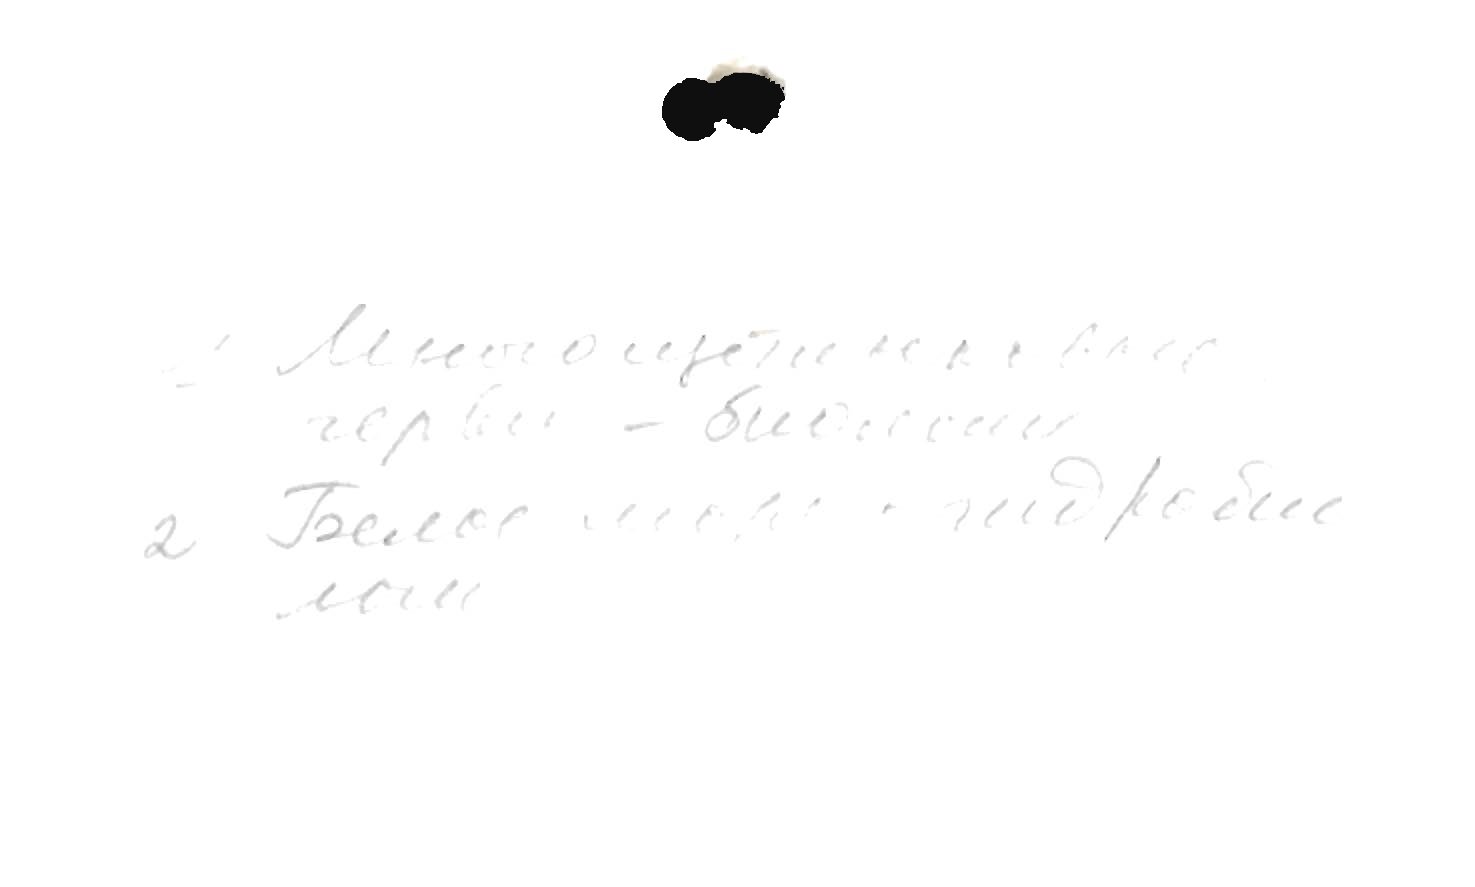 1 Многощетинковые
черви - биология
2 Белое море - гидробио
логия